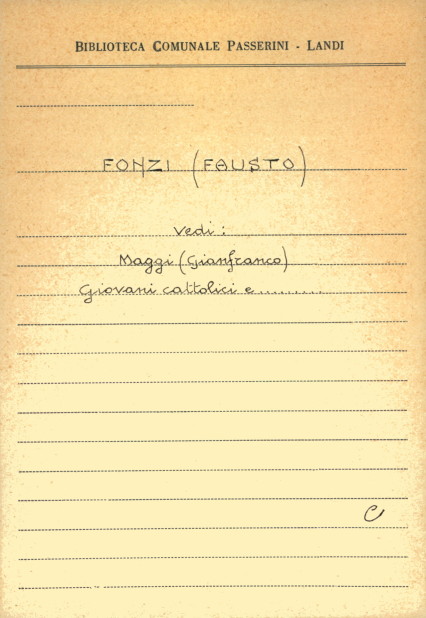 BIBLIOTECA COMUNALE PASSERINI - LANDI
FONZI (FAUSTO)
Vedi:
Maggi (Gianfranco)
Giovani cattolici e .........
C